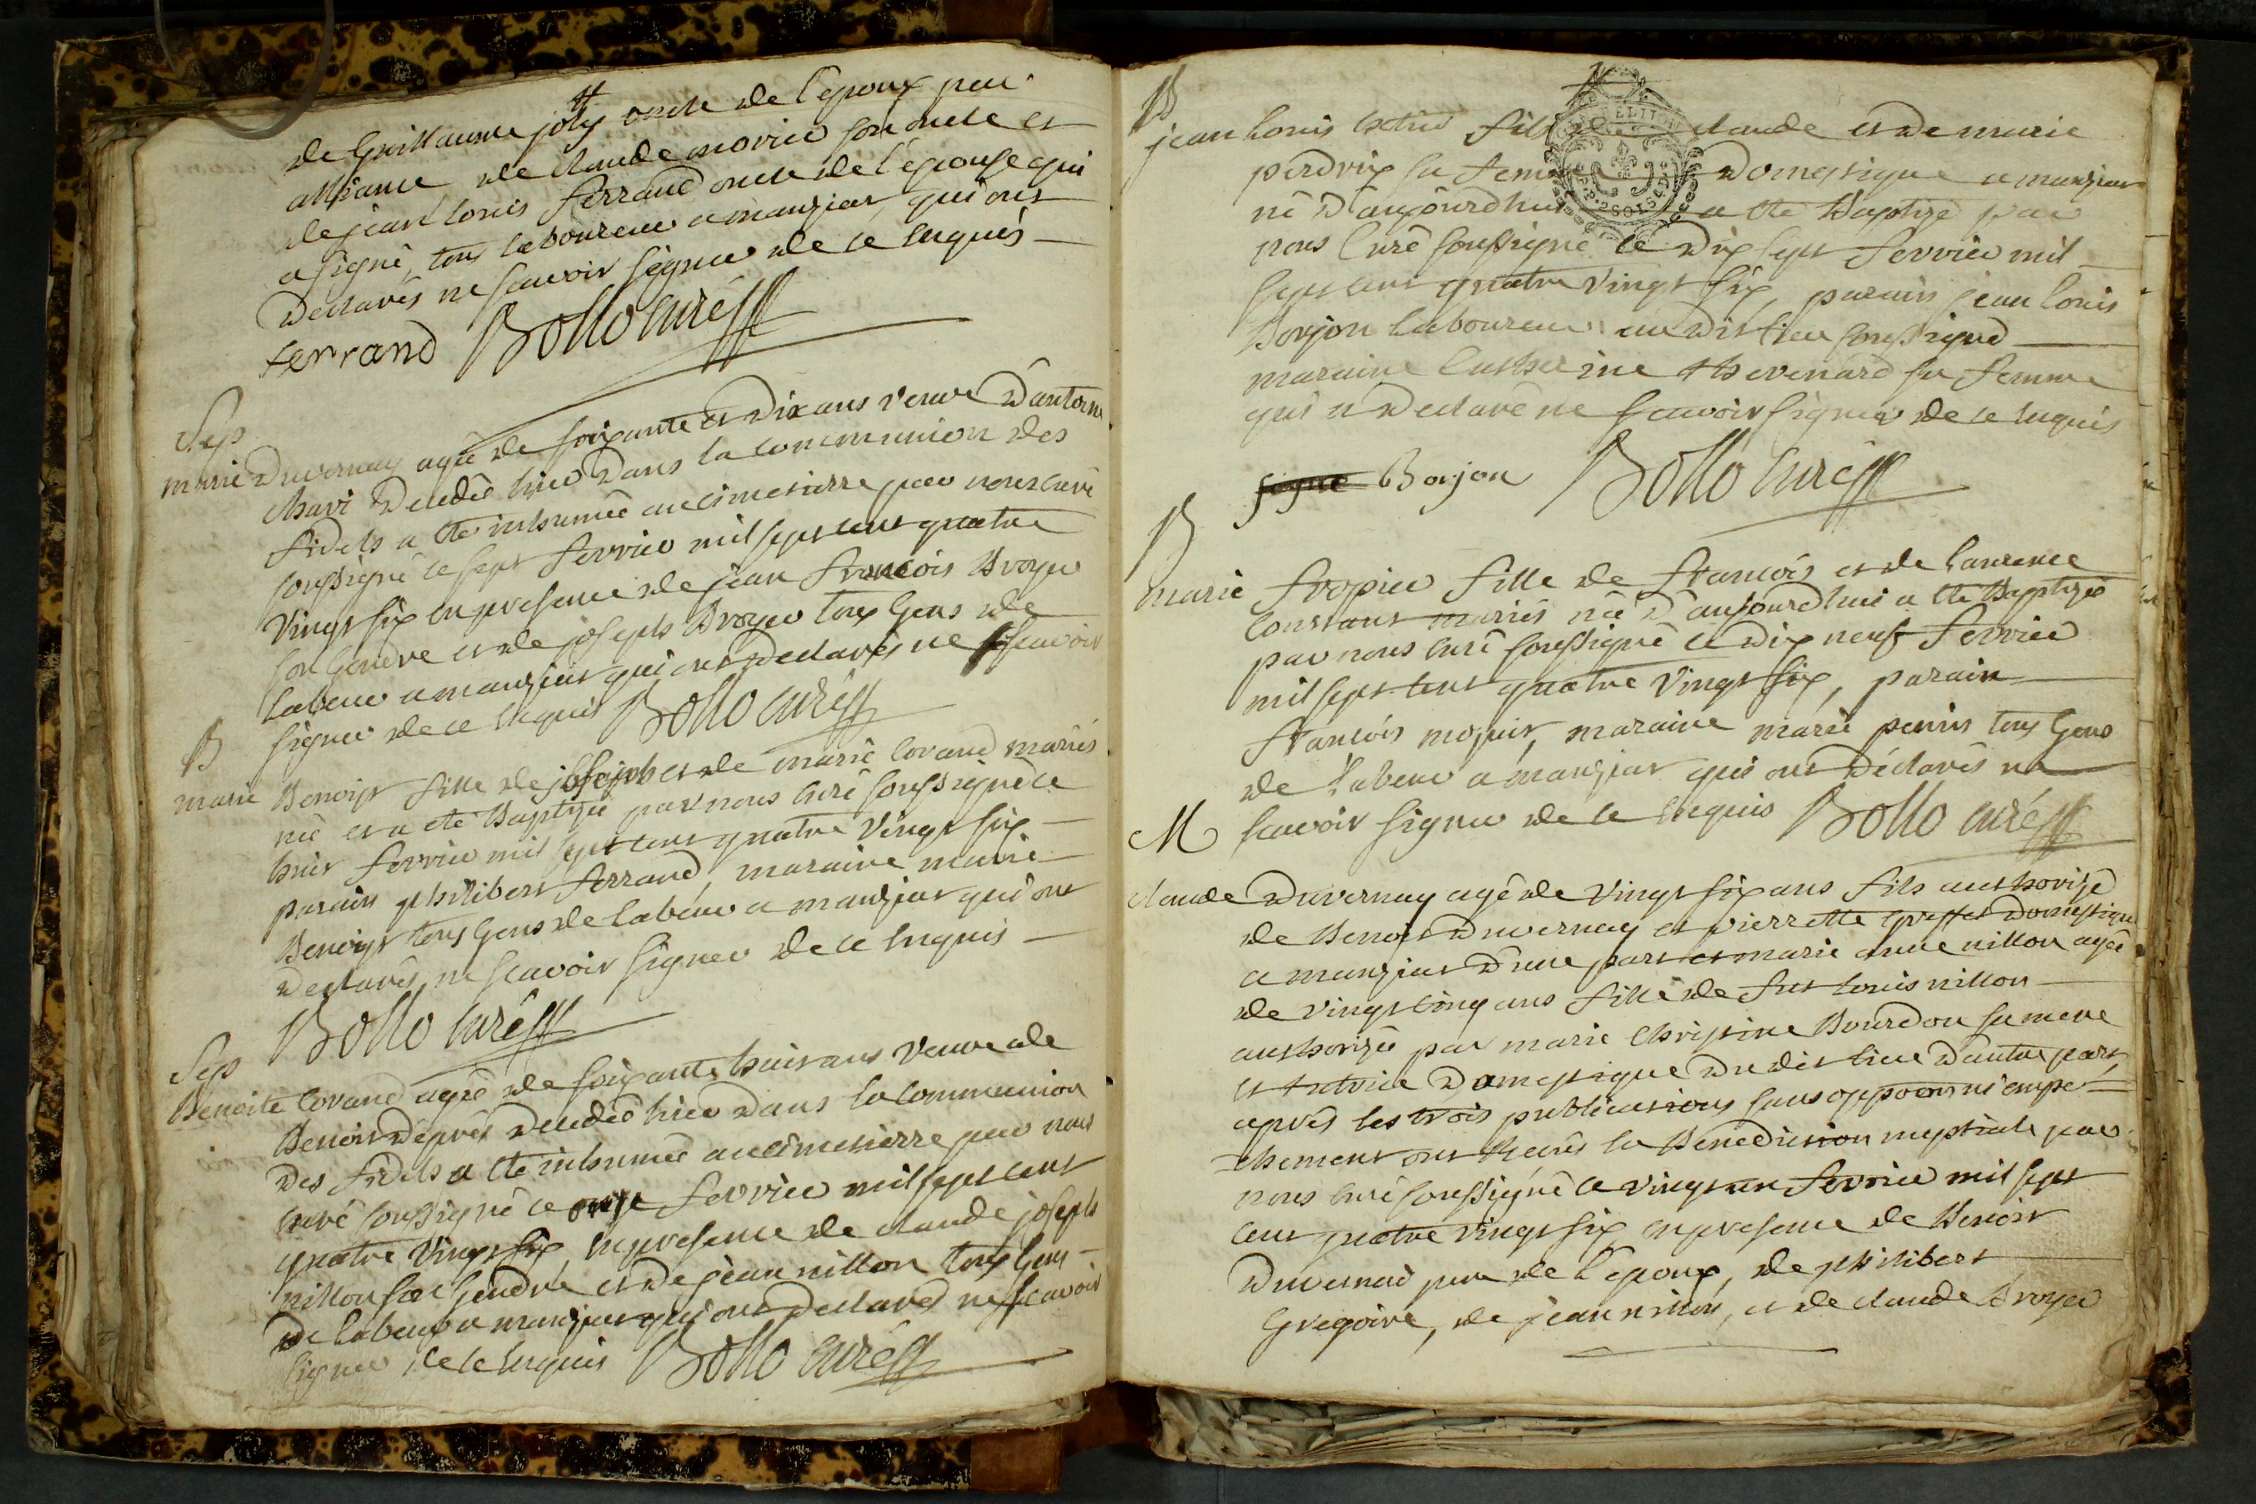 de Guillaume joly oncle de l'epoux par
alliance de claude morier son oncle et
de jean louis ferrand oncle de l'epouse qui
a signé, tous laboureur a manziat, qui ont
declarés ne scavoir signer de ce enquis
ferrand Bollo curé
Sep
marie Duvernay agée de soixante et dix ans veuve d'antoine
chari decedée hier dans la communion des
fidels a ete inhumée au cimetierre par nous curé
soussigné le sept fevrier mil sept cent quatre
vingt six en presence de jean francois Broyer
son Gendre et de joseph Broyer tous Gens de
labeur a manziat qui ont declarés ne scavoir
signer de ce enquis Bollo curé
B
marie Benoist fille de joseph et de marie Corand mariés
née et a eté Baptizée par nous curé soussigné le
huit fevrier mil sept cent quatre vingt six
parain philibert ferrand, maraine marie
Benoist tous Gens de labeur a manziat qui ont
declarés ne scavoir signer de ce enquis
Bollo curé
Sep
Benoite Corand agée de soixante huit ans veuve de
Benoit Deprés decedée hier dans la communion
des fidels a eté inhumée au cimetierre par nous
curé soussigné le onze fevrier mil sept cent
quatre vingt six en presence de claude joseph
nillon son Gendre et de jean nillon tous Gens
de labeur a manziat qui ont declarés ne scavoir
signer de ce enquis Bollo curé
B
jean louis fils claude et de marie
perdrix sa femme Domestique a manziat
né d'aujourdhui a eté Baptizé par
nous Curé soussigné le dix sept fevrier mil
sept cent quatre vingt six, parain jean louis
Borjon laboureur au dit lieu soussigné
maraine Catherine thevenard sa femme
qui a declaré ne scavoir signer de ce enquis
signé Borjon Bollo curé
B
marie fropier fille de francois et de laurence
Constant mariés née d'aujourdhui a eté Baptizée
par nous curé soussigné le dix neuf fevrier
mil sept cent quatre vingt six, parain
francois, maraine marie tous Gens
de labeur a manziat qui ont declarés ne
scavoir signer de ce enquis Bollo curé
M
claude Duvernay agé de vingt six ans fils authorizé
de Benoit Duvernay et pierrette domestique
a manziat d'une part et marie anne nillon agée
de vingt cinq ans fille de fut louis nillon
authorizée par marie christine Bourdon sa mere
et tutrice Domestique du dit lieu d'autre part,
aprés les trois publications sans oppoon ni empe
chement ont Reçus la Benediction nuptiale par
nous curé soussigné le vingt un fevrier mil sept
cent quatre vingt six en presence de Benoit
Duvernai pere de l'epoux, de philibert
Gregoire, de jean nillon, et de claude Broyer